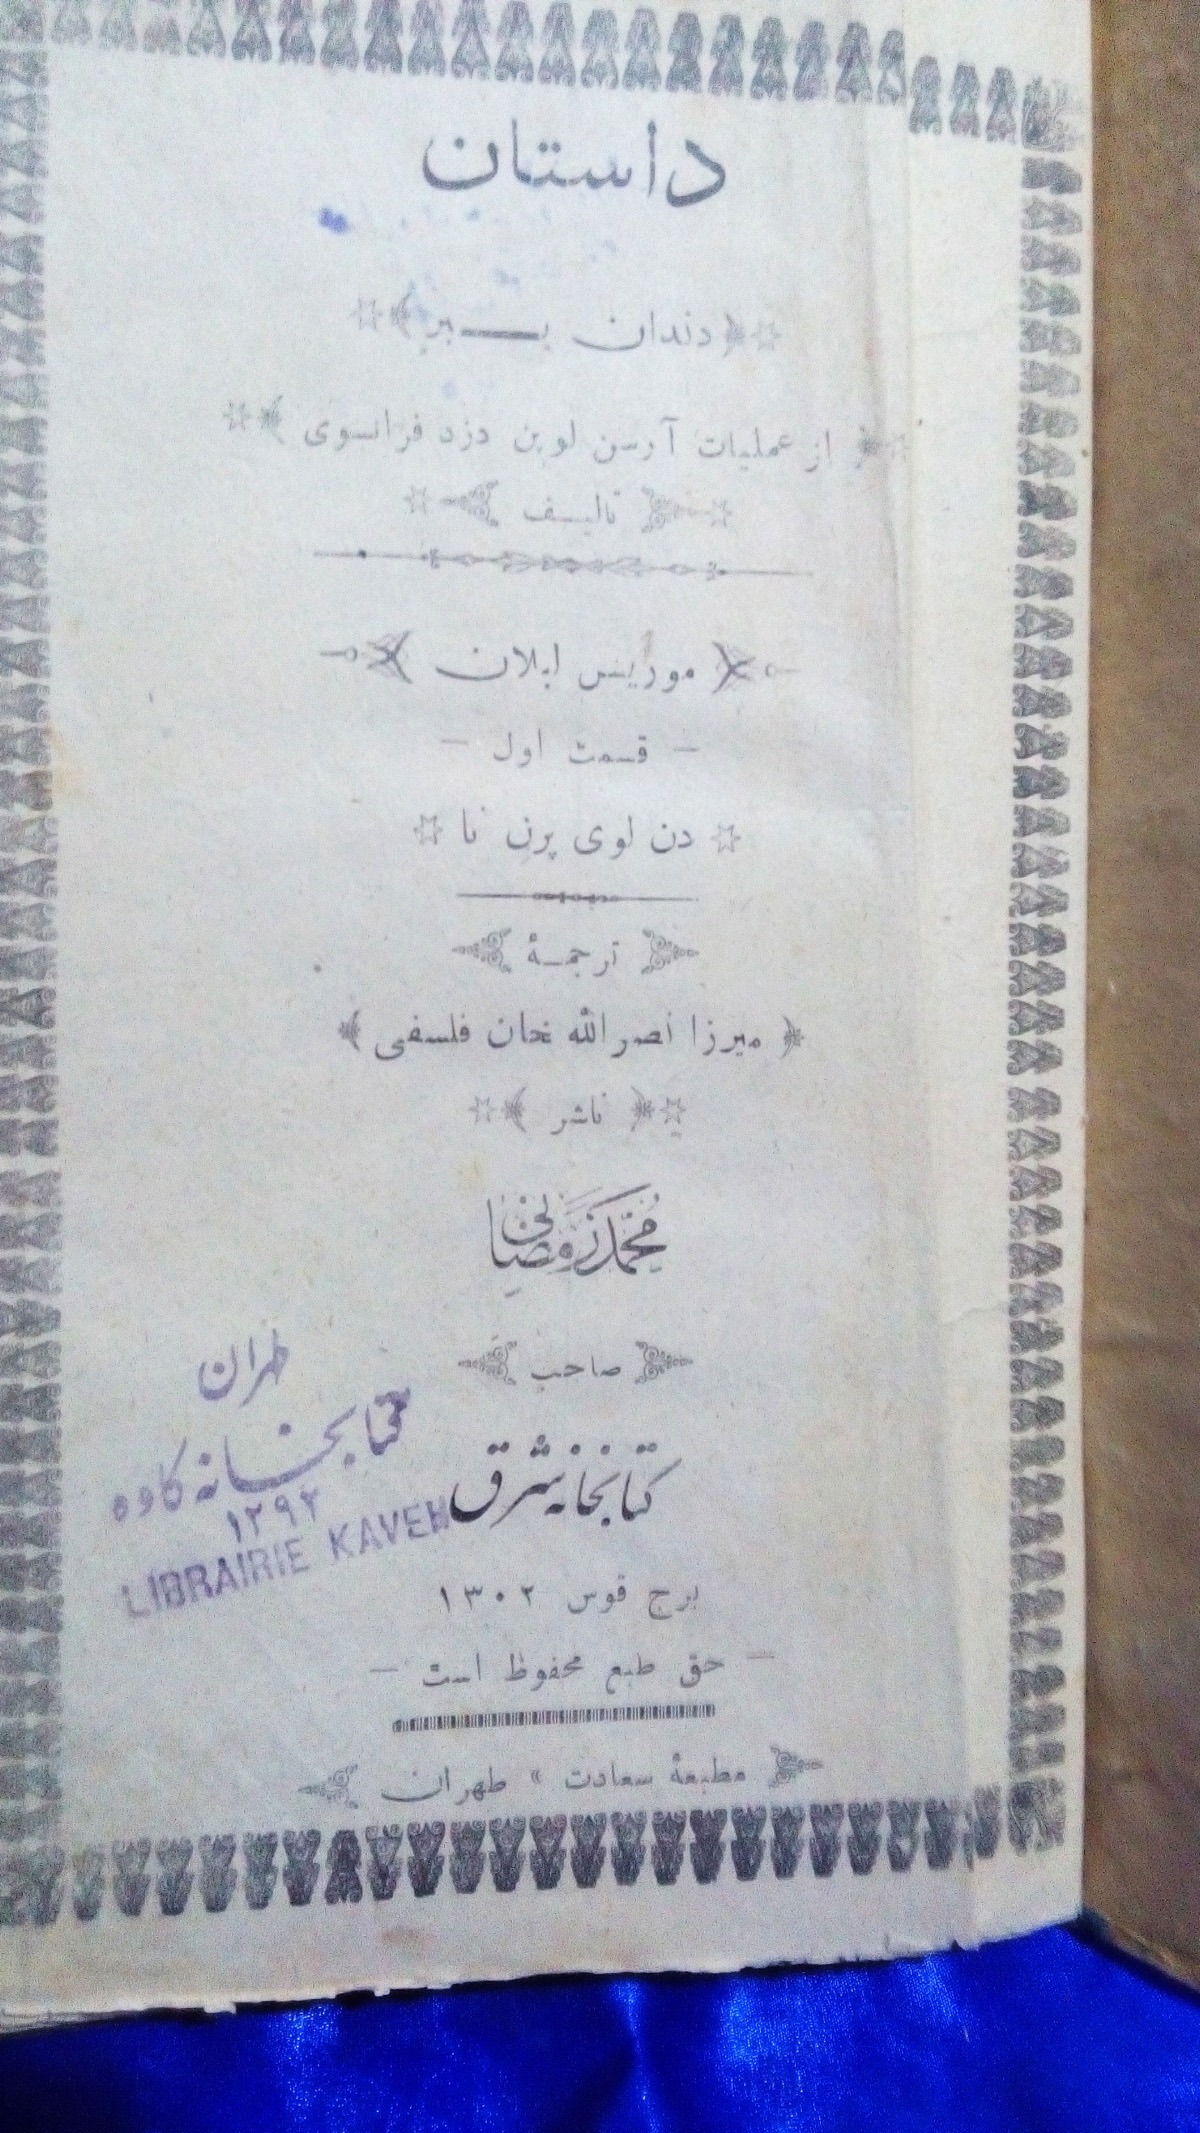 داستان
دندان ببر
از عملیات آرسن لوپن دزد فرانسوی
تالیف
موریس لبلان
قسمت اول
دن لوی پرن نا
ترجمهٔ
میرزا نصرالله خان فلسفی
ناشر
محمد رمضانی
صاحب
کتابخانه شرق
برج قوس ۱۳۰۲
حق طبع محفوظ است
مطبعهٔ سعادت » طهران
طهران
کتابخانه کاوه
۱۲۹۲
LIBRAIRIE KAVEH